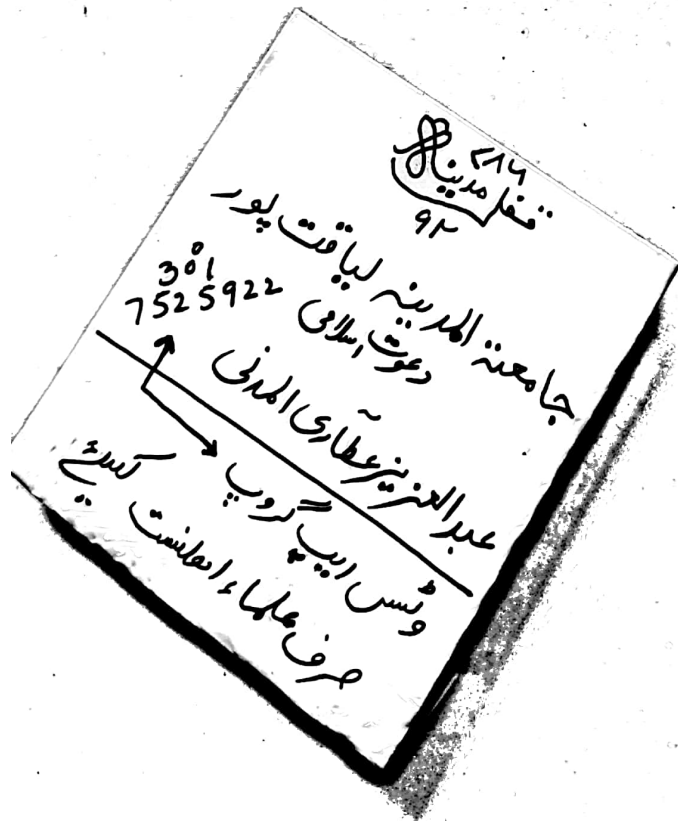 ۷۸۶
قفل مدینہ
۹۲
جامعۃ المدینہ لیاقت پور
دعوت اسلامی
0301
7525922
عبدالعزیز عطآری المدنی
وٹس ایپ گروپ کیلئے
صرف علماء اہلسنت